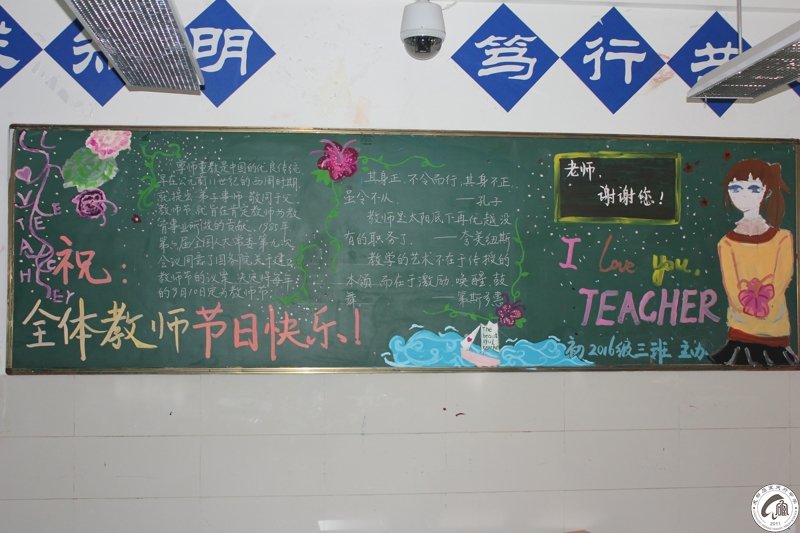 明
笃
行
尊师重教是中国的优良传统
早在公元前11世纪的西周时期
就提出"弟子事师,敬同于父"
教师节,就旨在肯定教师为教
育事业所做的贡献。1985年
第六届全国人大常委第九次
会议同意了国务院关于建立
教师节的议案,决定将每年
的9月10日定为教师节。
祝:
全体教师节日快乐!
其身正,不令而行,其身不正
虽令不从 ——孔子
教师是太阳底下再优越没
有的职务了 ——夸美纽斯
教学的艺术不在于传授的
本领,而在于激励,唤醒,鼓
舞 ——第斯多惠
老师,
谢谢您!
I love you,
TEACHER
初2016级三班 主办
2011